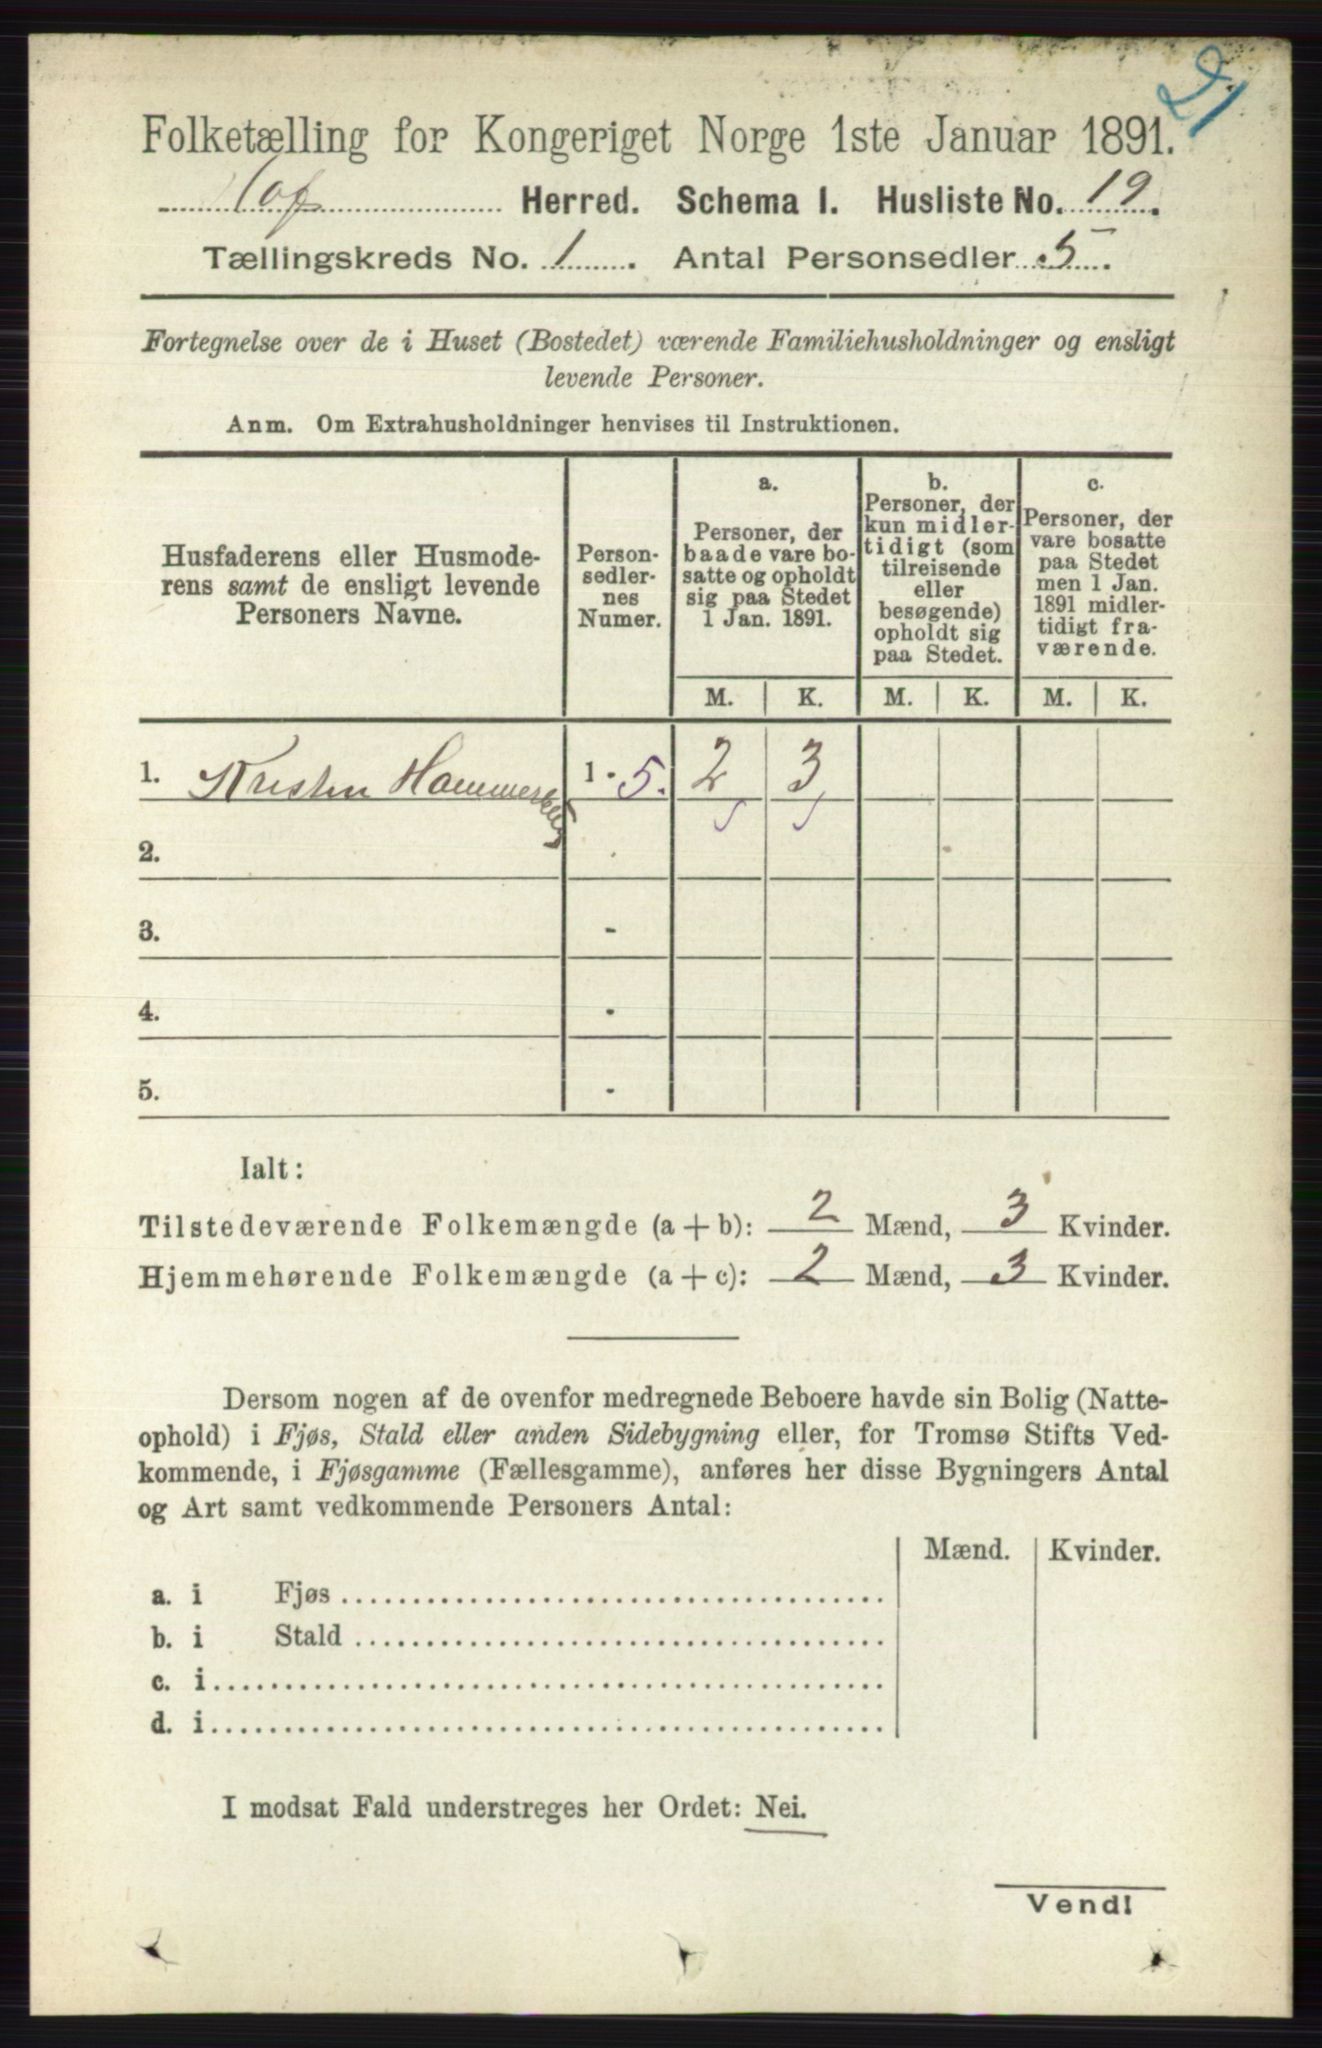 21
Folketælling for Kongeriget Norge 1ste Januar 1891.
Hof Herred. Schema I. Husliste No. 19.
Tællingskreds No. 1. Antal Personsedler 5.
Fortegnelse over de i Huset (Bostedet) værende Familiehusholdninger og ensligt
levende Personer.
Anm. Om Extrahusholdninger henvises til Instruktionen.
Husfaderens eller Husmode-
rens samt de ensligt levende
Personers Navne.
Person-
sedler-
nes
Numer.
a.
Personer, der
baade vare bo-
satte og opholdt
sig paa Stedet
1 Jan. 1891.
b.
Personer, der
kun midler-
tidigt (som
tilreisende
eller
besøgende)
opholdt sig
paa Stedet.
c.
Personer, der
vare bosatte
paa Stedet
men 1 Jan.
1891 midler-
tidigt fra-
værende.
M. K. M. K. M. K.
1. Kristen 1 - 5. 2 3
2.
3. -
4. -
5. -
Ialt:
Tilstedeværende Folkemængde (a + b): 2 Mænd, 3 Kvinder.
Hjemmehørende Folkemængde (a + c): 2 Mænd, 3 Kvinder.
Dersom nogen af de ovenfor medregnede Beboere havde sin Bolig (Natte-
ophold) i Fjøs, Stald eller anden Sidebygning eller, for Tromsø Stifts Ved-
kommende, i Fjøsgamme (Fællesgamme), anføres her disse Bygningers Antal
og Art samt vedkommende Personers Antal:
Mænd. Kvinder.
a. i Fjøs
b. i Stald
c. i
d. i
I modsat Fald understreges her Ordet: Nei.
Vend!